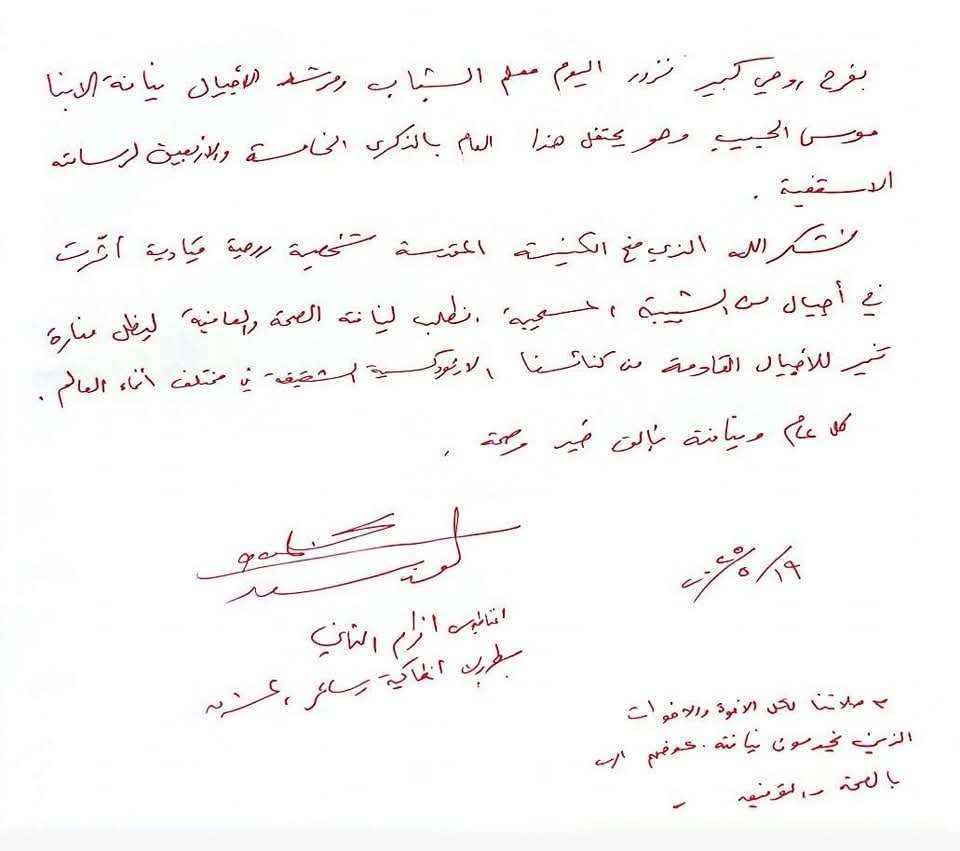 بفرح روحي كبير نزور اليوم معلم الشباب ومرشد الأجيال نيافة الانبا
موسى الحبيب وهو يحتفل هذا العام بالذكرى الخامسة والاربعين لرسامته
الاسقفية .
نشكر الله الذي منح الكنيسة المقدسة شخصية روحية قيادية أثّرت
في أجيال من الشبيبة المسيحية . نطلب لنيافته الصحة والعافية ليظل منارة
تنير للأجيال القادمة من كنائسنا الارثوذكسية الشقيقة في مختلف أنحاء العالم .
كل عام ونيافته بألف خير وصحة .
١٩/٥/٢٠٢٥
اغناطيوس افرام الثاني
بطريرك أنطاكية وسائر المشرق
صلاتنا لكل الاخوة والاخوات
الذين يخدمون نيافته . عوضهم الرب
بالصحة والتوفيق